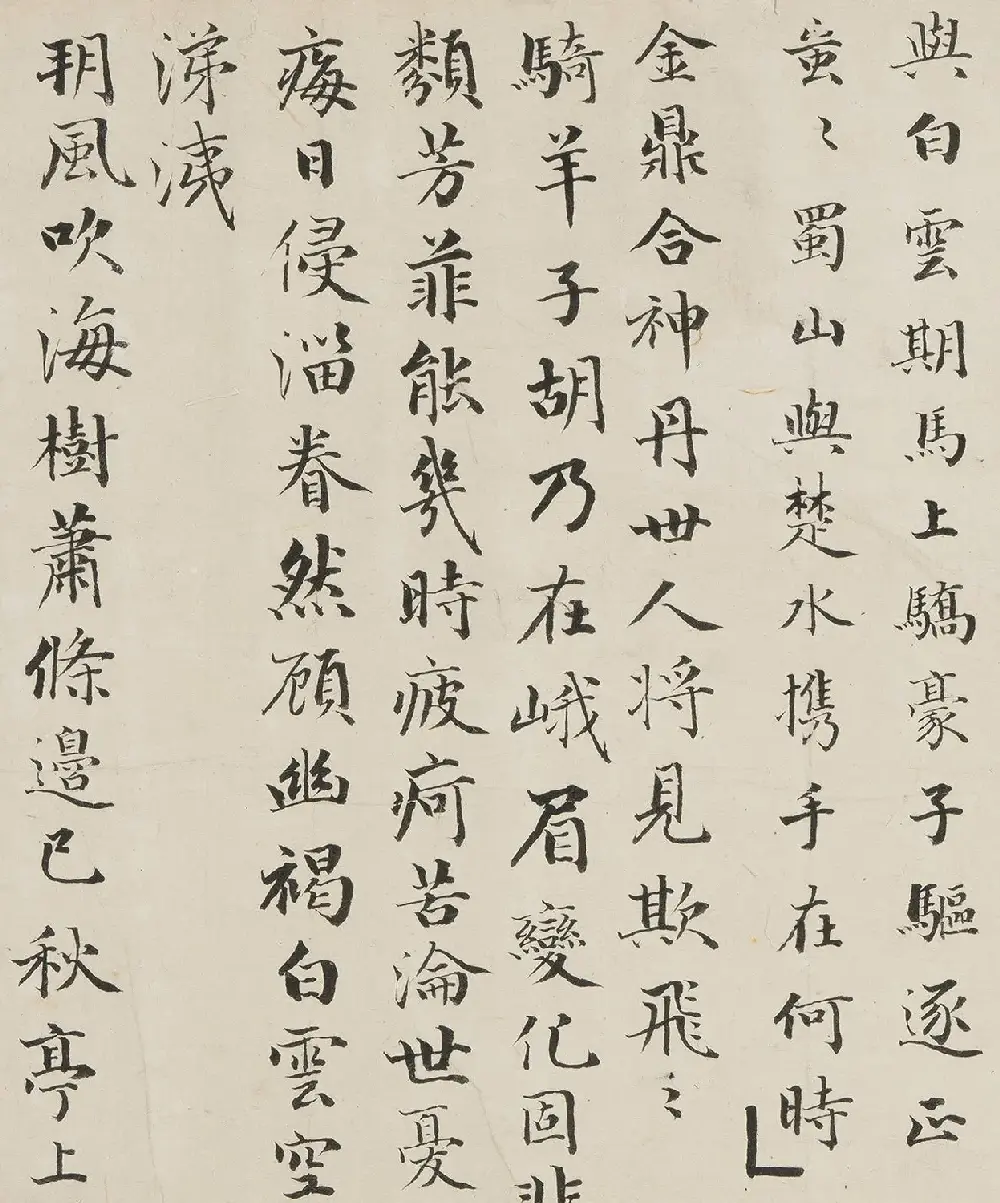 與白雲期馬上驕豪子驅逐正
蚩〻蜀山與楚水携手在何時
金鼎合神丹世人将見欺飛〻
騎羊子胡乃在峨眉變化固非
類芳菲能幾時疲疴苦淪世憂
痗日侵淄眷然顾幽褐白雲空
涕洟
朔風吹海樹蕭條邊已秋亭上